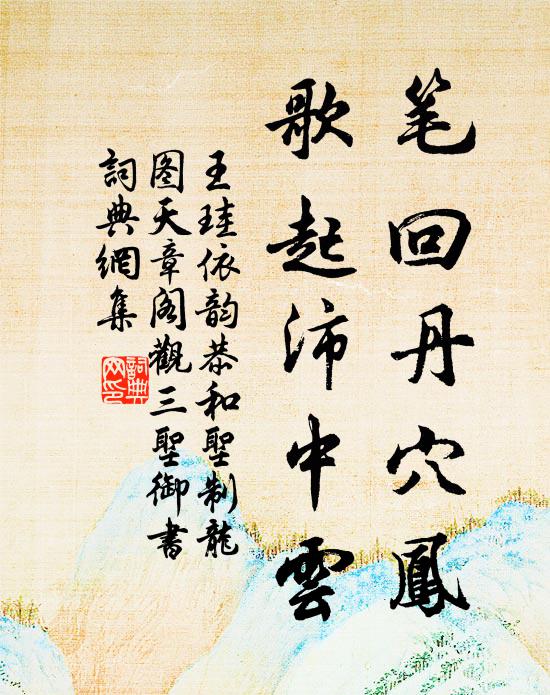 笔回丹穴鳳
歌起沛中雲
王珪依韵恭和聖制龍
图天章阁觀三聖御書
詞典網集
詞典网印